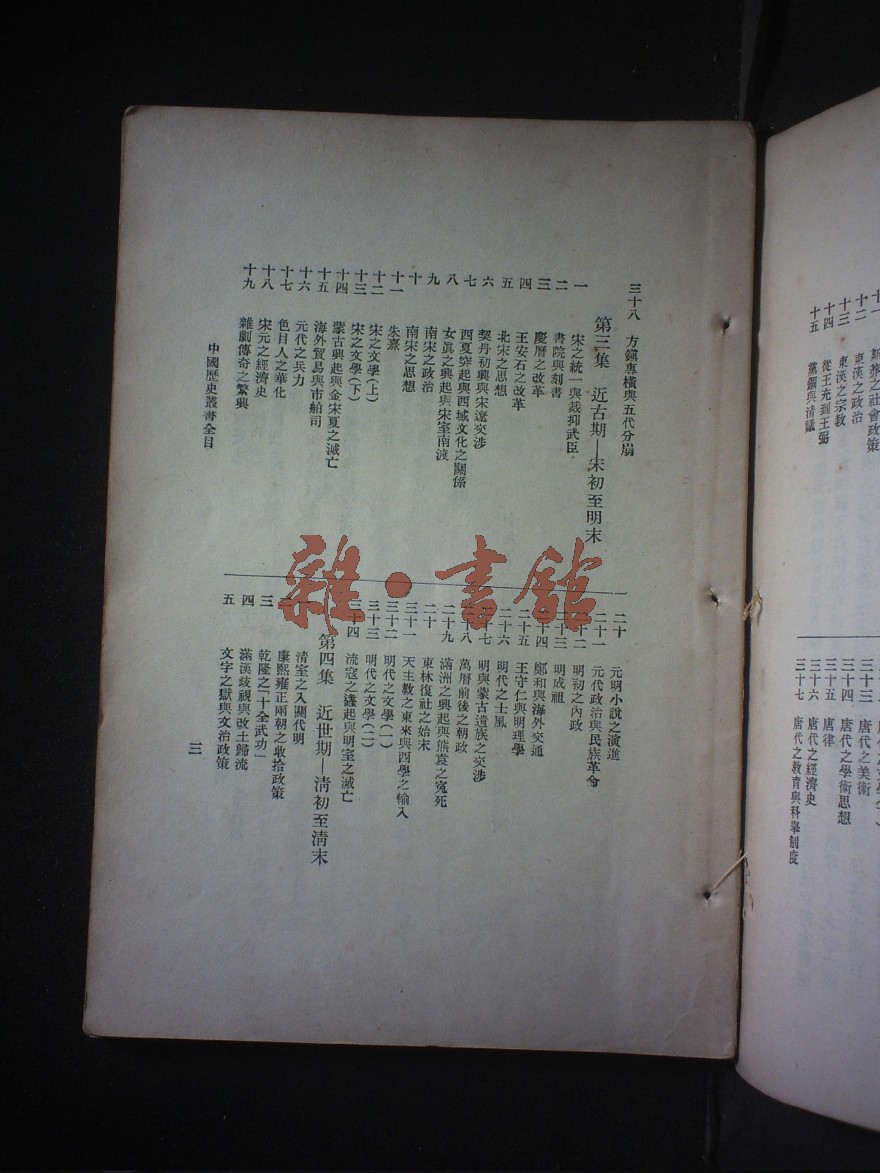 十一 新莽之社會政策
十二 東漢之政治
十三 東漢之宗教
十四 從王充到王弼
十五 黨錮與清議
三十三 唐代之美術
三十四 唐代之學術思想
三十五 唐律
三十六 唐代之經濟史
三十七 唐代之教育與科舉制度
三十八 方鎮專橫與五代分崩
第三集 近古期—宋初至明末
一 宋之統一與裁抑武臣
二 書院與刻書
三 慶曆之改革
四 王安石之改革
五 北宋之思想
六 契丹初興與宋遼交涉
七 西夏突起與西域文化之關係
八 女眞之興起與宋室南渡
九 南宋之政治
十 南宋之思想
十一 朱熹
十二 宋之文學(上)
十三 宋之文學(下)
十四 蒙古興起與金宋夏之滅亡
十五 海外貿易與市舶司
十六 元代之兵力
十七 色目人之華化
十八 宋元之經濟史
十九 雜劇傳奇之繁興
二十 元明小說之演進
二十一 元代政治與民族革命
二十二 明初之內政
二十三 明成祖
二十四 鄭和與海外交通
二十五 王守仁與明理學
二十六 明代之士風
二十七 明與蒙古遺族之交涉
二十八 萬曆前後之朝政
二十九 滿洲之興起與熊袁之冤死
三十 東林復社之始末
三十一 天主教之東來與西學之輸入
三十二 明代之文學(一)
三十三 明代之文學(二)
三十四 流寇之蠭起與明室之滅亡
第四集 近世期—清初至清末
一 清室之入關代明
二 康熙雍正兩朝之收拾政策
三 乾隆之「十全武功」
四 滿漢歧視與改土歸流
五 文字之獄與文治政策
中國歷史叢書全目
三
雜·書館